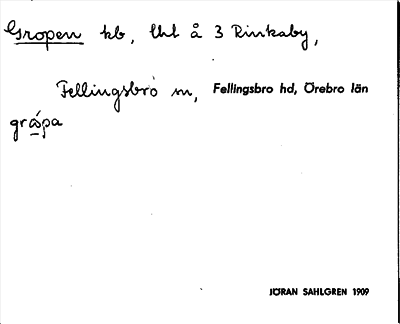 Gropen kb, lht å 3 Rinkaby,
Fellingsbro sn, Fellingsbro hd, Örebro län
gråpa
JÖRAN SAHLGREN 1909